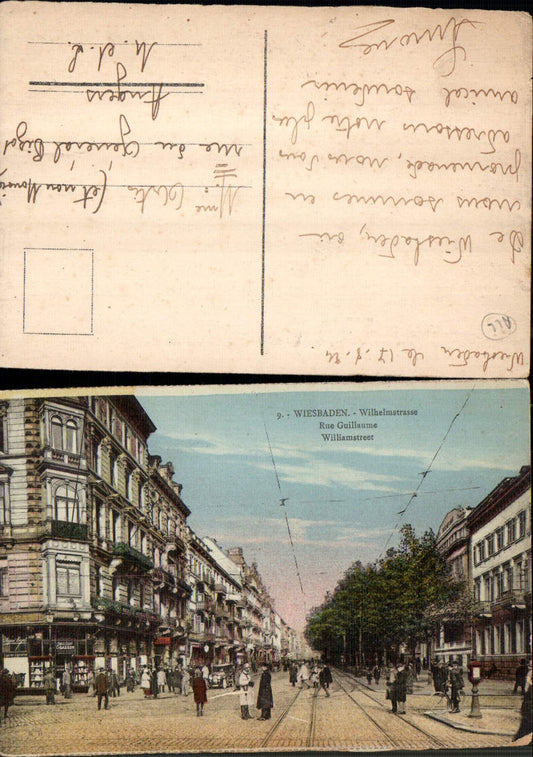 Wiesbaden le 17.9.24
De Wiesbaden, où
nous sommes en
promenade, nous vous
adressons notre plus
amical souvenir
Simone
Mme
(et non Mons
rue du Général Bizot
Angers
M. et L.
ALL
9. - WIESBADEN. - Wilhelmstrasse
Rue Guillaume
Williamstreet